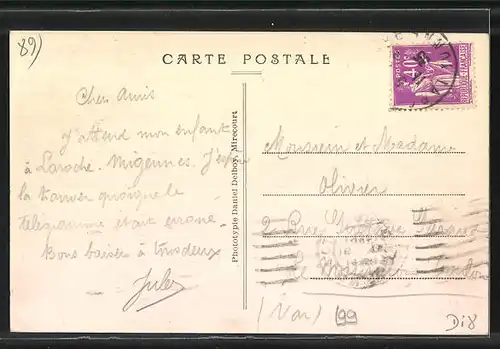 89)
CARTE POSTALE
POSTES
40c
REPUBLIQUE FRANÇAISE
Cher Amis
J'attend mon enfant
à Laroche. Migennes. J'
la trouver quoique le
télégramme était erroné.
Bons baisers à tous deux
Jules
Phototypie Daniel Delboy, Mirecourt
Monsieur et Madame
Olivier
2 Rue
(Var)
99
D18